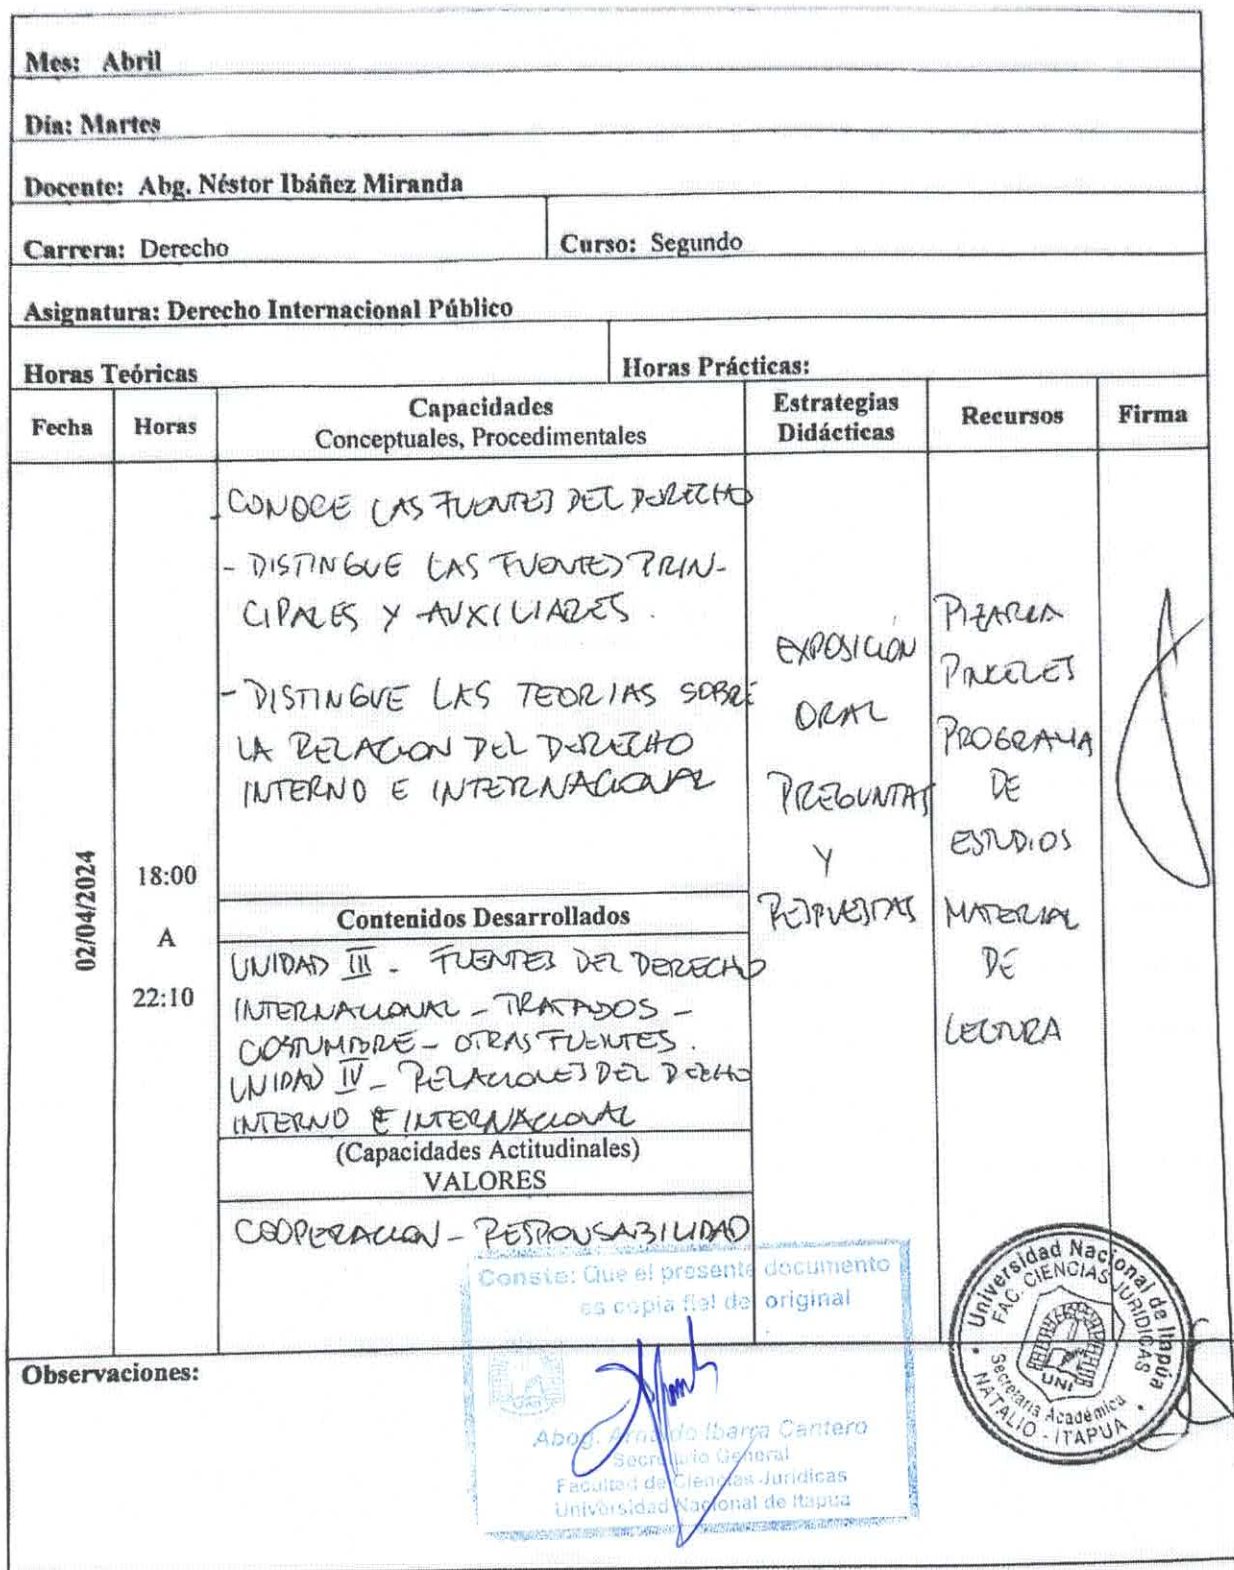 Mes: Abril
Día: Martes
Docente: Abg. Néstor Ibáñez Miranda
Carrera: Derecho
Curso: Segundo
Asignatura: Derecho Internacional Público
Horas Teóricas
Horas Prácticas:
Fecha
Horas
Capacidades
Conceptuales, Procedimentales
Estrategias
Didácticas
Recursos
Firma
02/04/2024
18:00
A
22:10
- CONOCE LAS FUENTES DEL DERECHO
- DISTINGUE LAS FUENTES PRIN-
CIPALES Y AUXILIARES.
- DISTINGUE LAS TEORIAS SOBRE
LA RELACION DEL DERECHO
INTERNO E INTERNACIONAL
Contenidos Desarrollados
UNIDAD III - FUENTES DEL DERECHO
INTERNACIONAL - TRATADOS -
COSTUMBRE - OTRAS FUENTES.
UNIDAD IV - RELACIONES DEL DERECHO
INTERNO E INTERNACIONAL
(Capacidades Actitudinales)
VALORES
COOPERACION - RESPONSABILIDAD
EXPOSICIÓN
ORAL
PREGUNTAS
Y
RESPUESTAS
PIZARRA
PINCELES
PROGRAMA
DE
ESTUDIOS
MATERIAL
DE
LECTURA
Consta: Que el presente documento
es copia fiel del original
Observaciones:
Abog. Arnaldo Ibarra Cantero
Secretario General
Facultad de Ciencias Jurídicas
Universidad Nacional de Itapúa
Universidad Nacional de Itapúa
FAC. CIENCIAS JURIDICAS
UNI
Secretaria Académica
NATALIO - ITAPUA